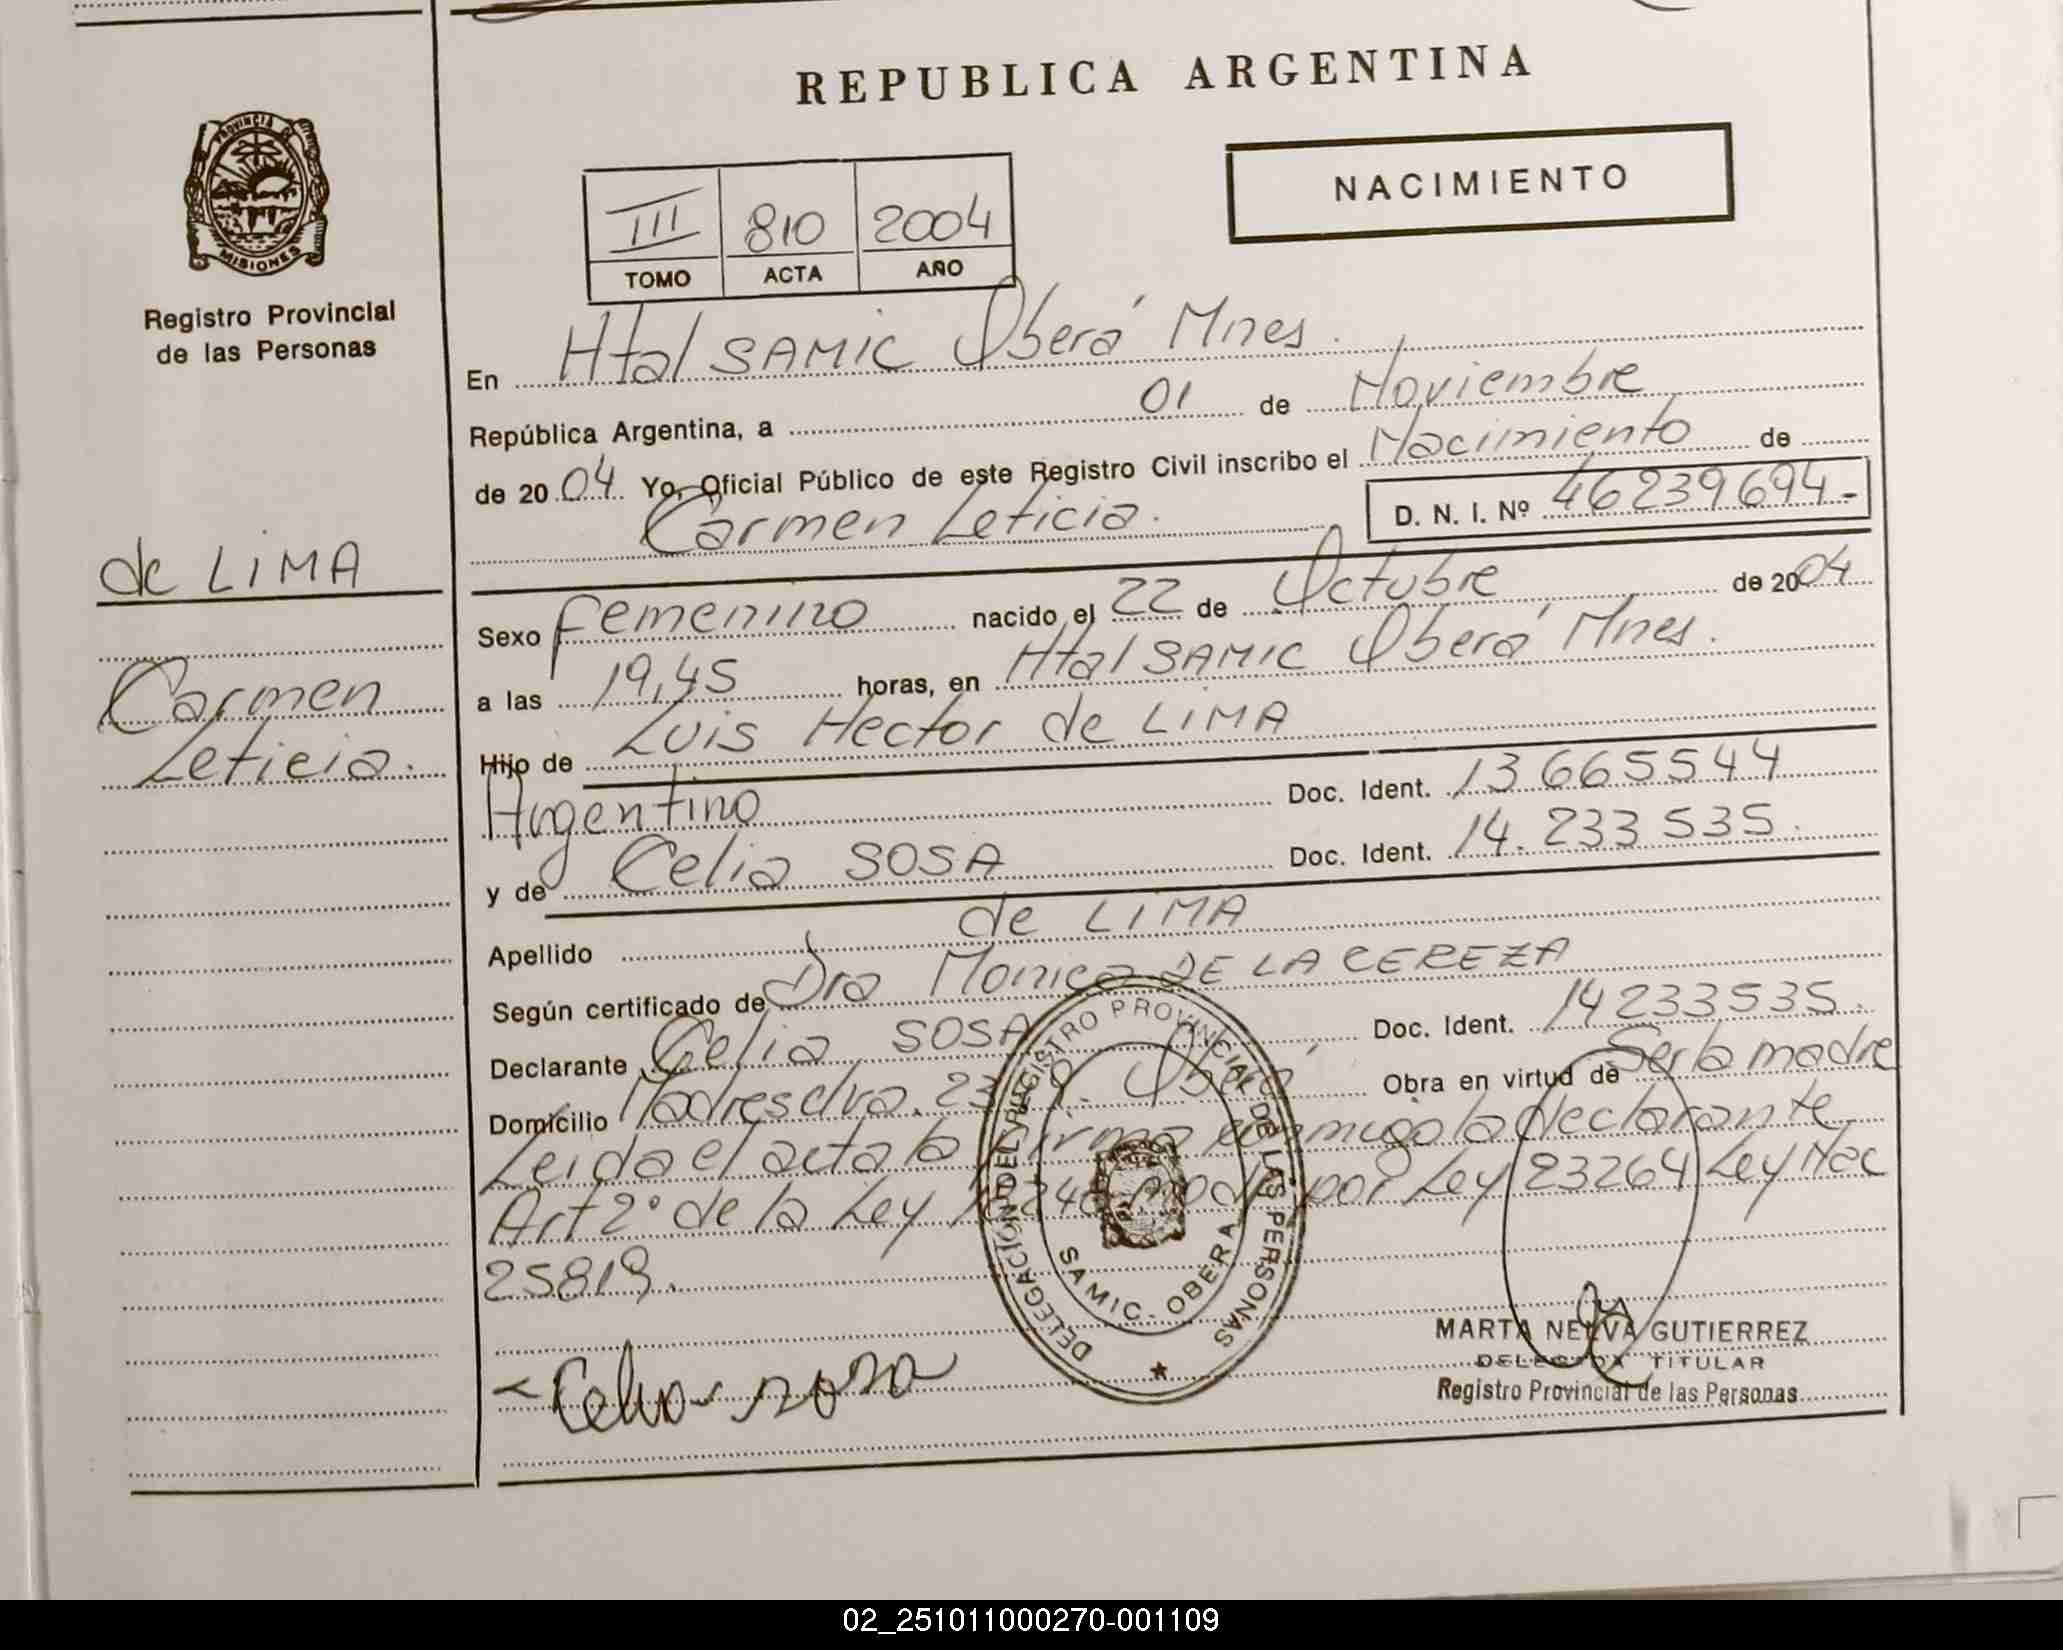 REPUBLICA ARGENTINA
NACIMIENTO
III 810 2004
TOMO ACTA AÑO
PROVINCIA DE
MISIONES
Registro Provincial
de las Personas
de LiMA
Carmen
Leticia.
En Htal SAMIC Oberá Mnes.
República Argentina, a 01 de Noviembre
de 2004 Yo, Oficial Público de este Registro Civil inscribo el Nacimiento de
Carmen Leticia. D. N. I. Nº 46239694-
Sexo Femenino nacido el 22 de Octubre de 2004
a las 19,45 horas, en Htal SAMIC Oberá Mnes.
Hijo de Luis Hector de LiMA
Argentino Doc. Ident. 13665544
y de Celia SOSA Doc. Ident. 14.233535.
Apellido de LiMA
Según certificado de Dra Monica DE LA CEREZA
Declarante Celia SOSA Doc. Ident. 14233535.
Domicilio Madreselva. Oberá Obra en virtud de Ser la madre
Leida el acta la firma conmigo la declarante
Art 2º de la Ley por Ley 23264 Ley Nac
25819.
DELEGACIÓN DEL REGISTRO PROVINCIAL DE LAS PERSONAS
SAMIC - OBERA
Celia sosa
MARTA NELVA GUTIERREZ
DELEGADA TITULAR
Registro Provincial de las Personas
02_251011000270-001109